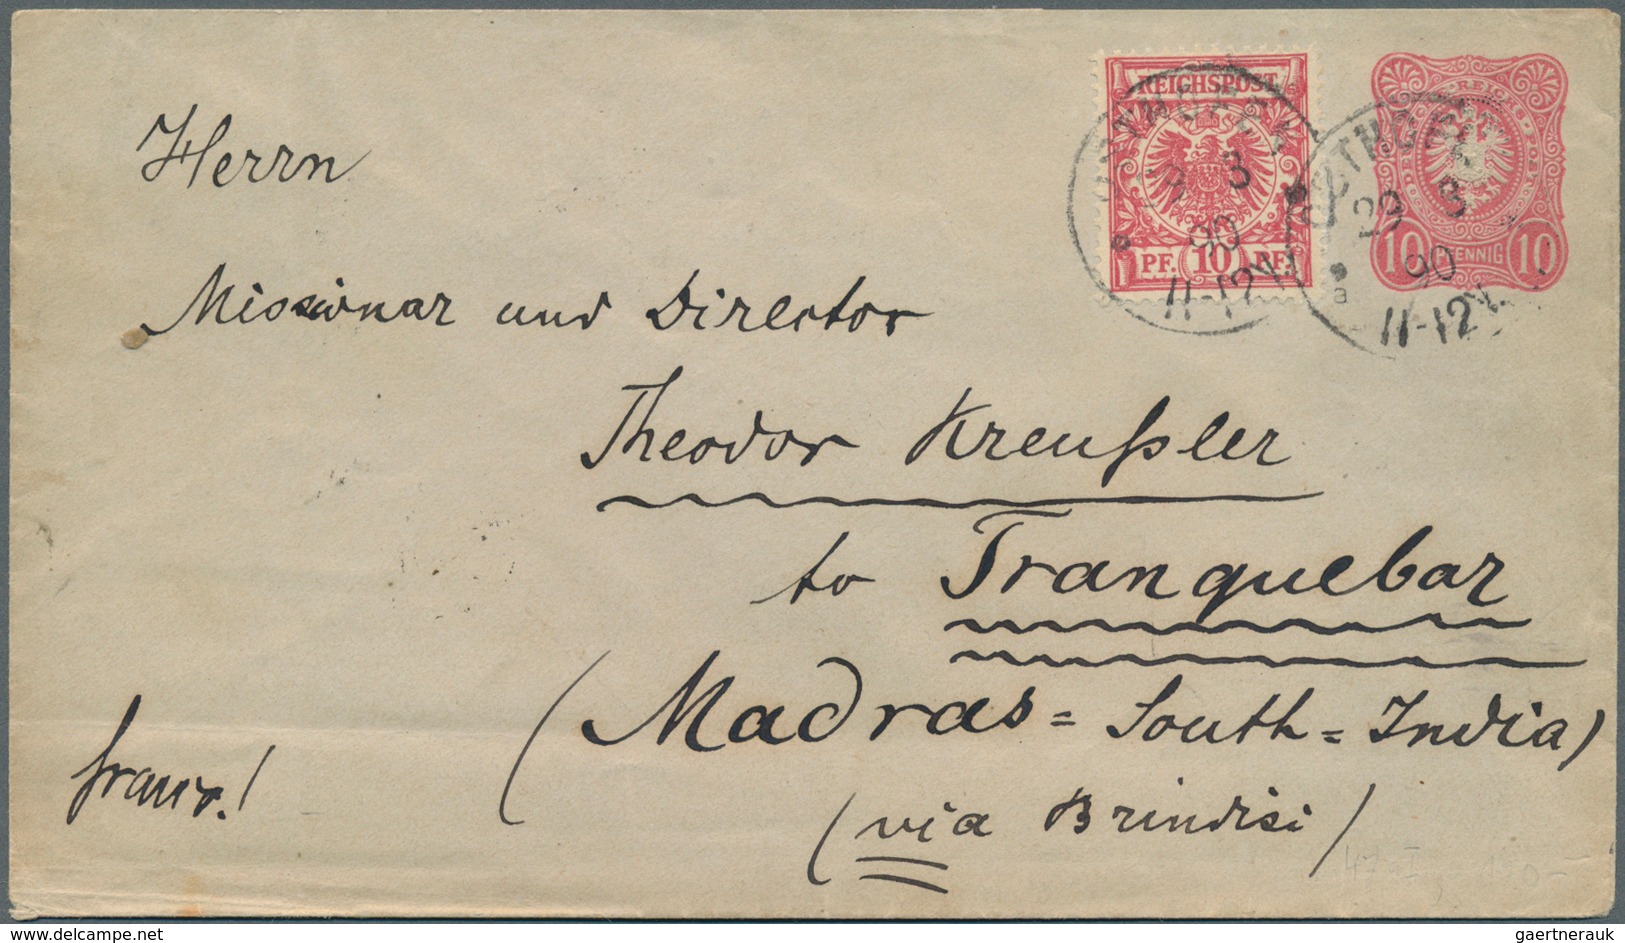 REICHSPOST
PF. 10 PF.
3
90
11-12V.
10 PFENNIG 10
29 3
90
11-12V.
Herrn
Missionar und Director
Theodor Kreußler
to Tranquebar
(Madras = South = India)
franco!
(via Brindisi)
47 I
www.delcampe.net
gaertnerauk